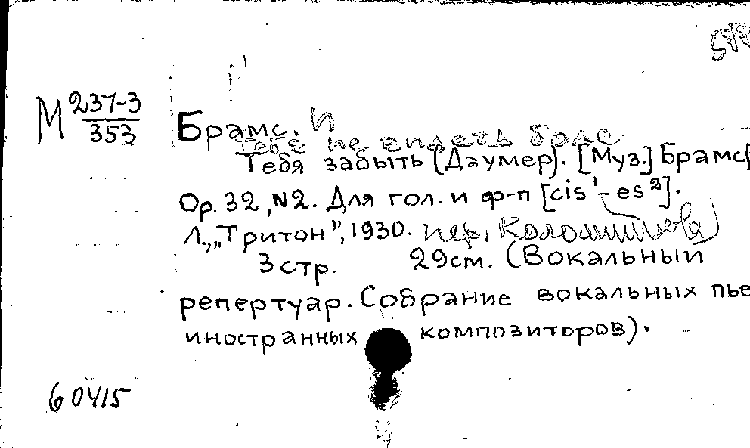 М 237-3
353
Брамс. И
Тебе не видеть боле
Тебя забыть [Даумер]. [Муз.] Брамс[
Op. 32, №2. Для гол. и ф-п [cis¹-es²].
Л., „Тритон", 1930. пер. Коломийцова)
3 стр. 29см. (Вокальный
репертуар. Собрание вокальных пье
иностранных композиторов).
60415